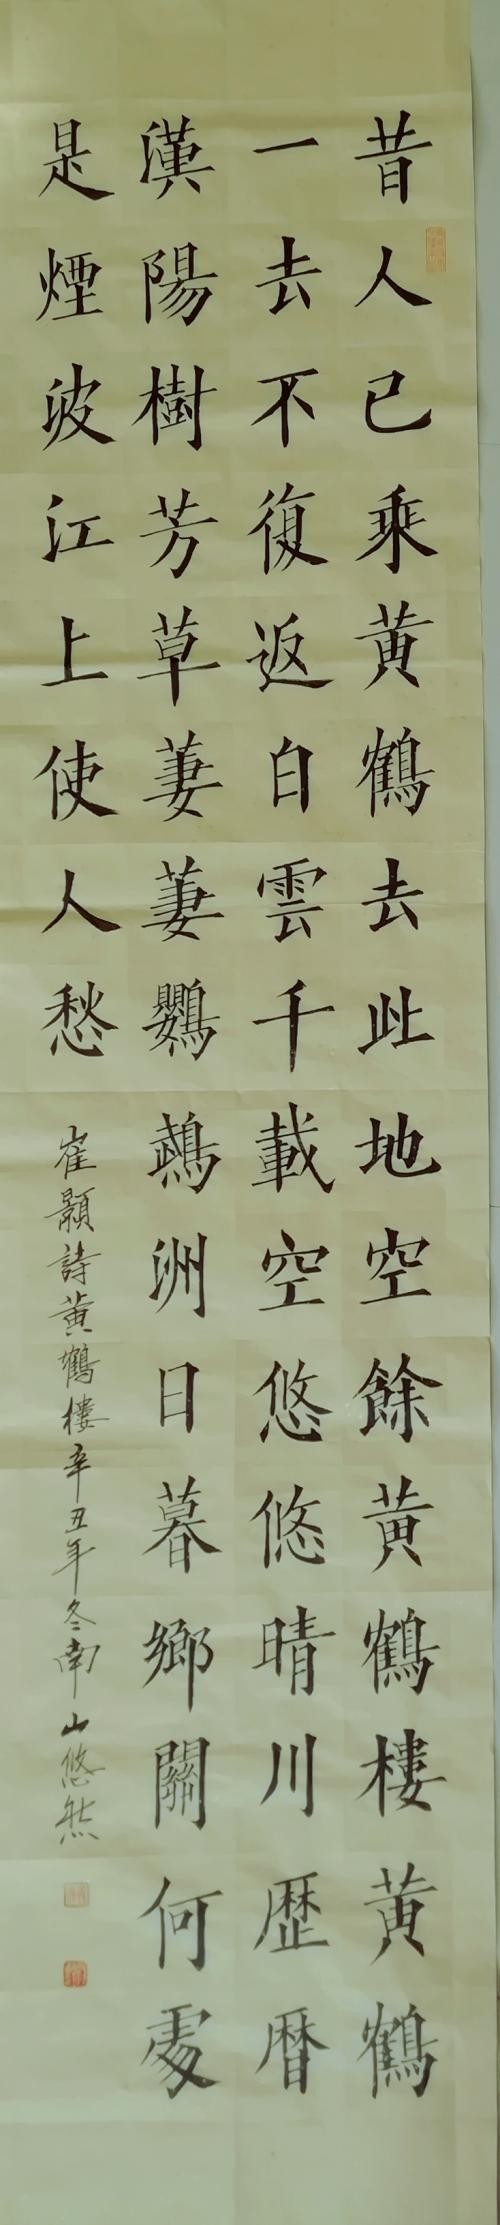 昔人已乘黄鶴去此地空餘黄鶴樓黄鶴
一去不復返白雲千載空悠悠晴川歷曆
漢陽樹芳草萋萋鸚鵡洲日暮鄉關何處
是煙波江上使人愁
崔顥詩黄鶴樓辛丑年冬南山悠然